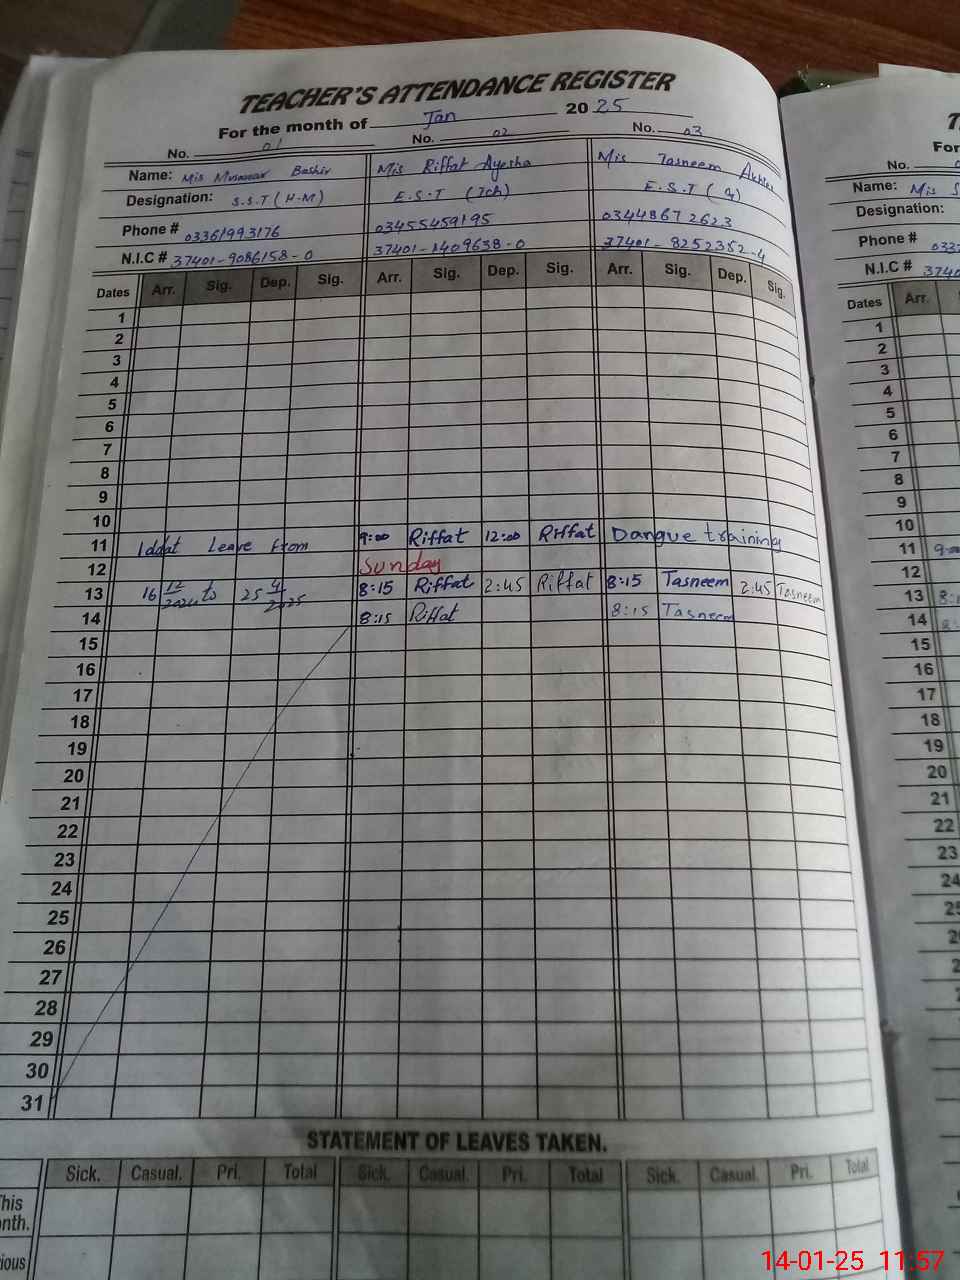 TEACHER'S ATTENDANCE REGISTER
For the month of Jan 2025
No. 01 No. 02 No. 03
Name: Mis Munawar Bashir Mis Riffat Ayesha Mis Tasneem Akhtar
Designation: S.S.T (H-M) E.S.T (Tch) E.S.T
Phone # 03361993176 03455459195 03448672623
N.I.C # 37401-9086158-0 37401-1409638-0 37401-8252352-4
Dates Arr. Sig. Dep. Sig. Arr. Sig. Dep. Sig. Arr. Sig. Dep. Sig.
1
2
3
4
5
6
7
8
9
10
11 Iddat Leave from 9:00 Riffat 12:00 Riffat Dangue training
12 Sunday
13 16 12/2024 to 25 4/2025 8:15 Riffat 2:45 Riffat 8:15 Tasneem 2:45 Tasneem
14 8:15 Riffat 8:15 Tasneem
15
16
17
18
19
20
21
22
23
24
25
26
27
28
29
30
31
STATEMENT OF LEAVES TAKEN.
Sick. Casual. Pri. Total Sick. Casual. Pri. Total Sick. Casual. Pri. Total
This
nth.
ious
For
No.
Name: Mis S
Designation:
Phone # 033
N.I.C # 3740
Dates Arr.
1
2
3
4
5
6
7
8
9
10
11 9:00
12
13 8:1
14 8:
15
16
17
18
19
20
21
22
23
24
25
26
14-01-25 11:57